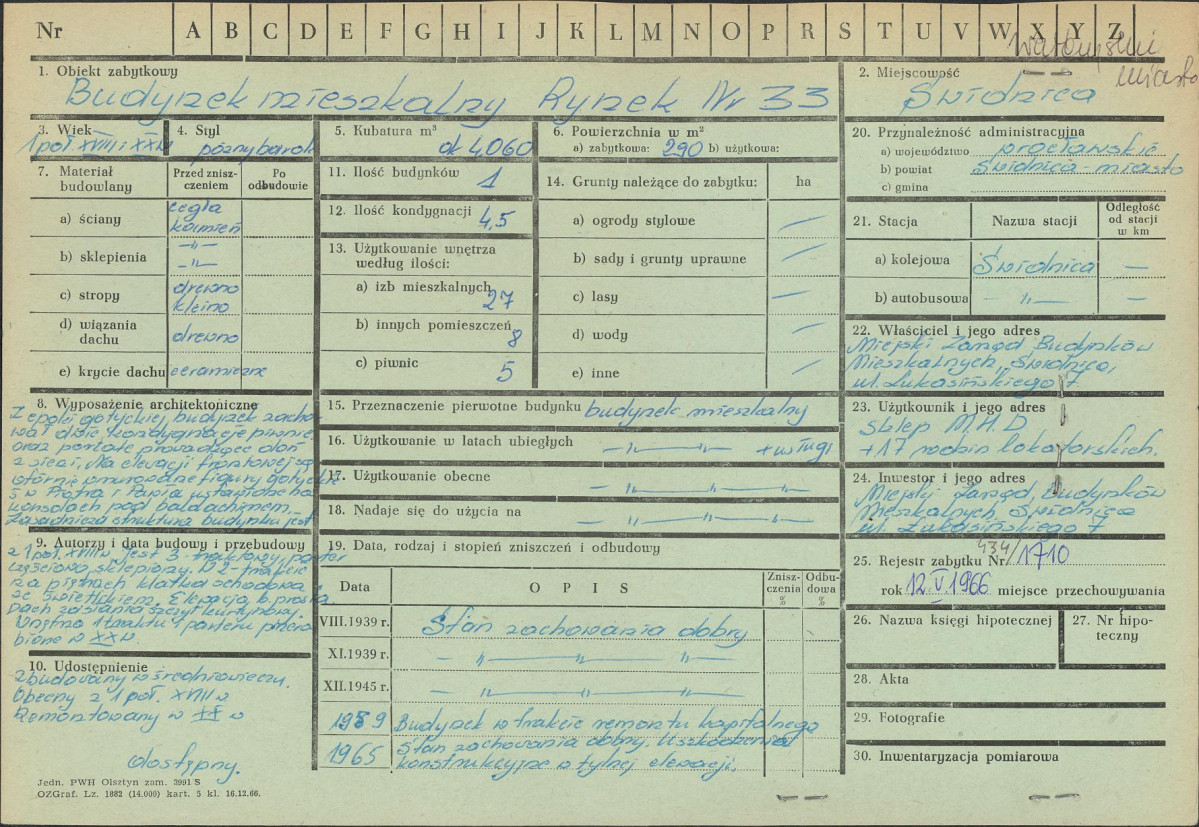 Nr A B C D E F G H I J K L M N O P R S T U V W X Y Z
miasto
1. Obiekt zabytkowy
Budynek mieszkalny Rynek Nr 33
2. Miejscowość
Świdnica
3. Wiek
1 poł. XVIII i XX w
4. Styl
późny barok
5. Kubatura m³
ok 4.060
6. Powierzchnia w m²
a) zabytkowa: 290 b) użytkowa:
7. Materiał budowlany
Przed zniszczeniem
Po odbudowie
a) ściany
cegła
kamień
b) sklepienia
-"-
-"-
c) stropy
drewno
kleino
d) wiązania dachu
drewno
e) krycie dachu ceramiczne
11. Ilość budynków 1
12. Ilość kondygnacji 4,5
13. Użytkowanie wnętrza
według ilości:
a) izb mieszkalnych
27
b) innych pomieszczeń
8
c) piwnic 5
14. Grunty należące do zabytku: ha
a) ogrody stylowe —
b) sady i grunty uprawne —
c) lasy —
d) wody —
e) inne —
20. Przynależność administracyjna
a) województwo wrocławskie
b) powiat Świdnica-miasto
c) gmina
21. Stacja
Nazwa stacji
Odległość
od stacji
w km
a) kolejowa Świdnica —
b) autobusowa -"- —
22. Właściciel i jego adres
Miejski Zarząd Budynków
Mieszkalnych, Świdnica,
ul. Łukasińskiego 7
23. Użytkownik i jego adres
sklep M.H.D
+17 rodzin lokatorskich.
24. Inwestor i jego adres
Miejski Zarząd Budynków
Mieszkalnych, Świdnica
ul. Łukasińskiego 7
25. Rejestr zabytku Nr 434/1710
rok 12.V.1966 miejsce przechowywania
26. Nazwa księgi hipotecznej
27. Nr hipoteczny
28. Akta
29. Fotografie
30. Inwentaryzacja pomiarowa
8. Wyposażenie architektoniczne
Z epoki gotyckiej budynek zacho-
wał dwie kondygnacje piwnic
oraz portale prowadzące doń
z sieni. Na elewacji frontowej są
wtórnie wmurowane figury gotyckie
św Piotra i Pawła ustawione na
konsolach pod baldachimem.
Zasadnicza struktura budynku jest
9. Autorzy i data budowy i przebudowy
z 1 poł. XVIII w. Jest 3-traktowy, parter
częściowo sklepiony. W 2-trakcie
na piętrach klatka schodowa
ze świetlikiem. Elewacja b. prosta.
Dach zasłania szczyt kurtynowy.
Wnętrza 1 traktu i parteru przero-
bione w XX w.
10. Udostępnienie
zbudowany w średniowieczu.
Obecny z 1 poł. XVIII w
Remontowany w XX w
dostępny.
15. Przeznaczenie pierwotne budynku budynek mieszkalny
16. Użytkowanie w latach ubiegłych -"- + usługi
17. Użytkowanie obecne -"- -"-
18. Nadaje się do użycia na -"- -"-
19. Data, rodzaj i stopień zniszczeń i odbudowy
Data
OPIS
Zniszczenia %
Odbudowa %
VIII.1939 r. Stan zachowania dobry
XI.1939 r. -"- -"- -"-
XII.1945 r. -"- -"- -"-
1959 Budynek w trakcie remontu kapitalnego
1965 Stan zachowania dobry. Uszkodzenia
konstrukcyjne w tylnej elewacji.
Jedn. PWH Olsztyn zam. 3991 S
OZGraf. Lz. 1882 (14.000) kart. 5 kl. 16.12.66.